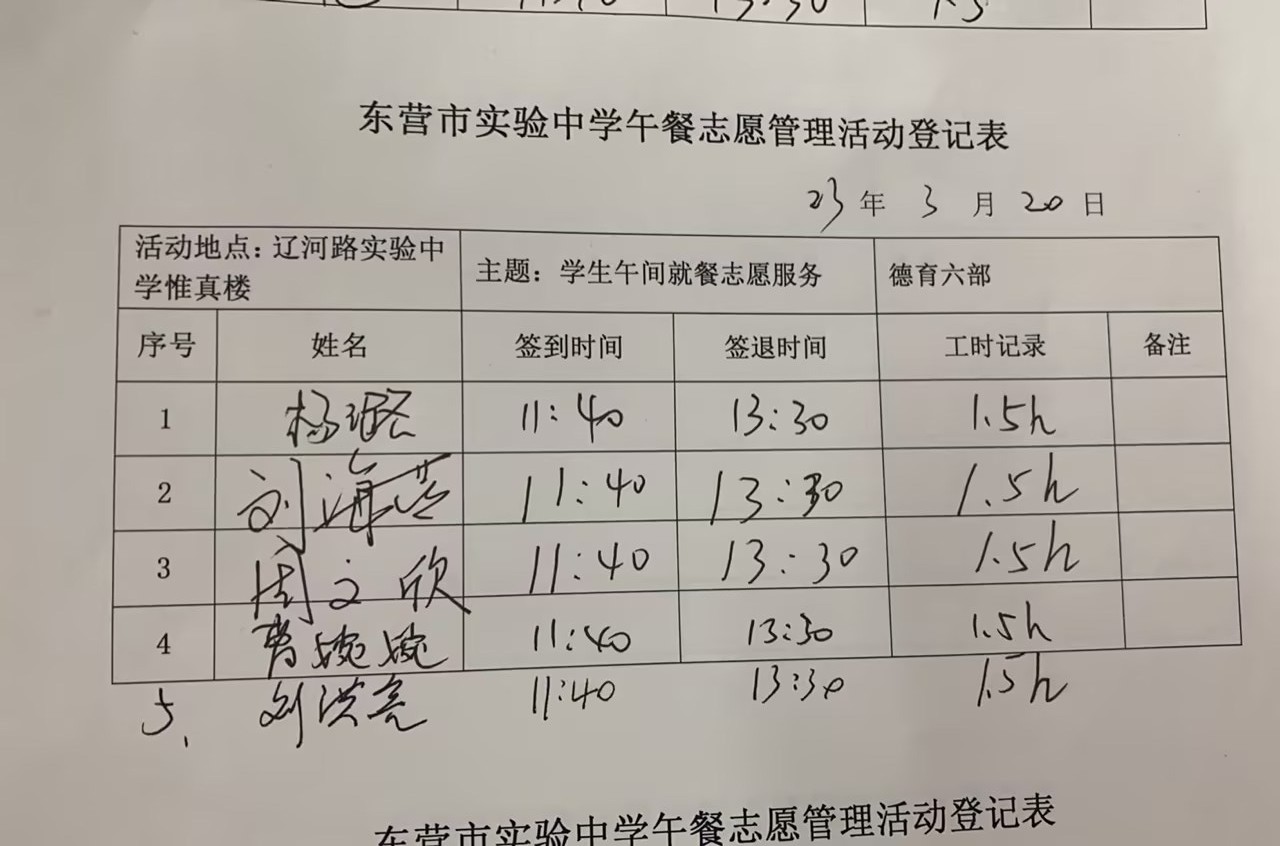 11:40 13:30 1.5
东营市实验中学午餐志愿管理活动登记表
23 年 3 月 20 日
活动地点：辽河路实验中学惟真楼 主题：学生午间就餐志愿服务 德育六部
序号 姓名 签到时间 签退时间 工时记录 备注
1 杨璐 11:40 13:30 1.5h
2 刘海燕 11:40 13:30 1.5h
3 周文欣 11:40 13:30 1.5h
4 曹婉婉 11:40 13:30 1.5h
5、 刘洪亮 11:40 13:30 1.5h
东营市实验中学午餐志愿管理活动登记表